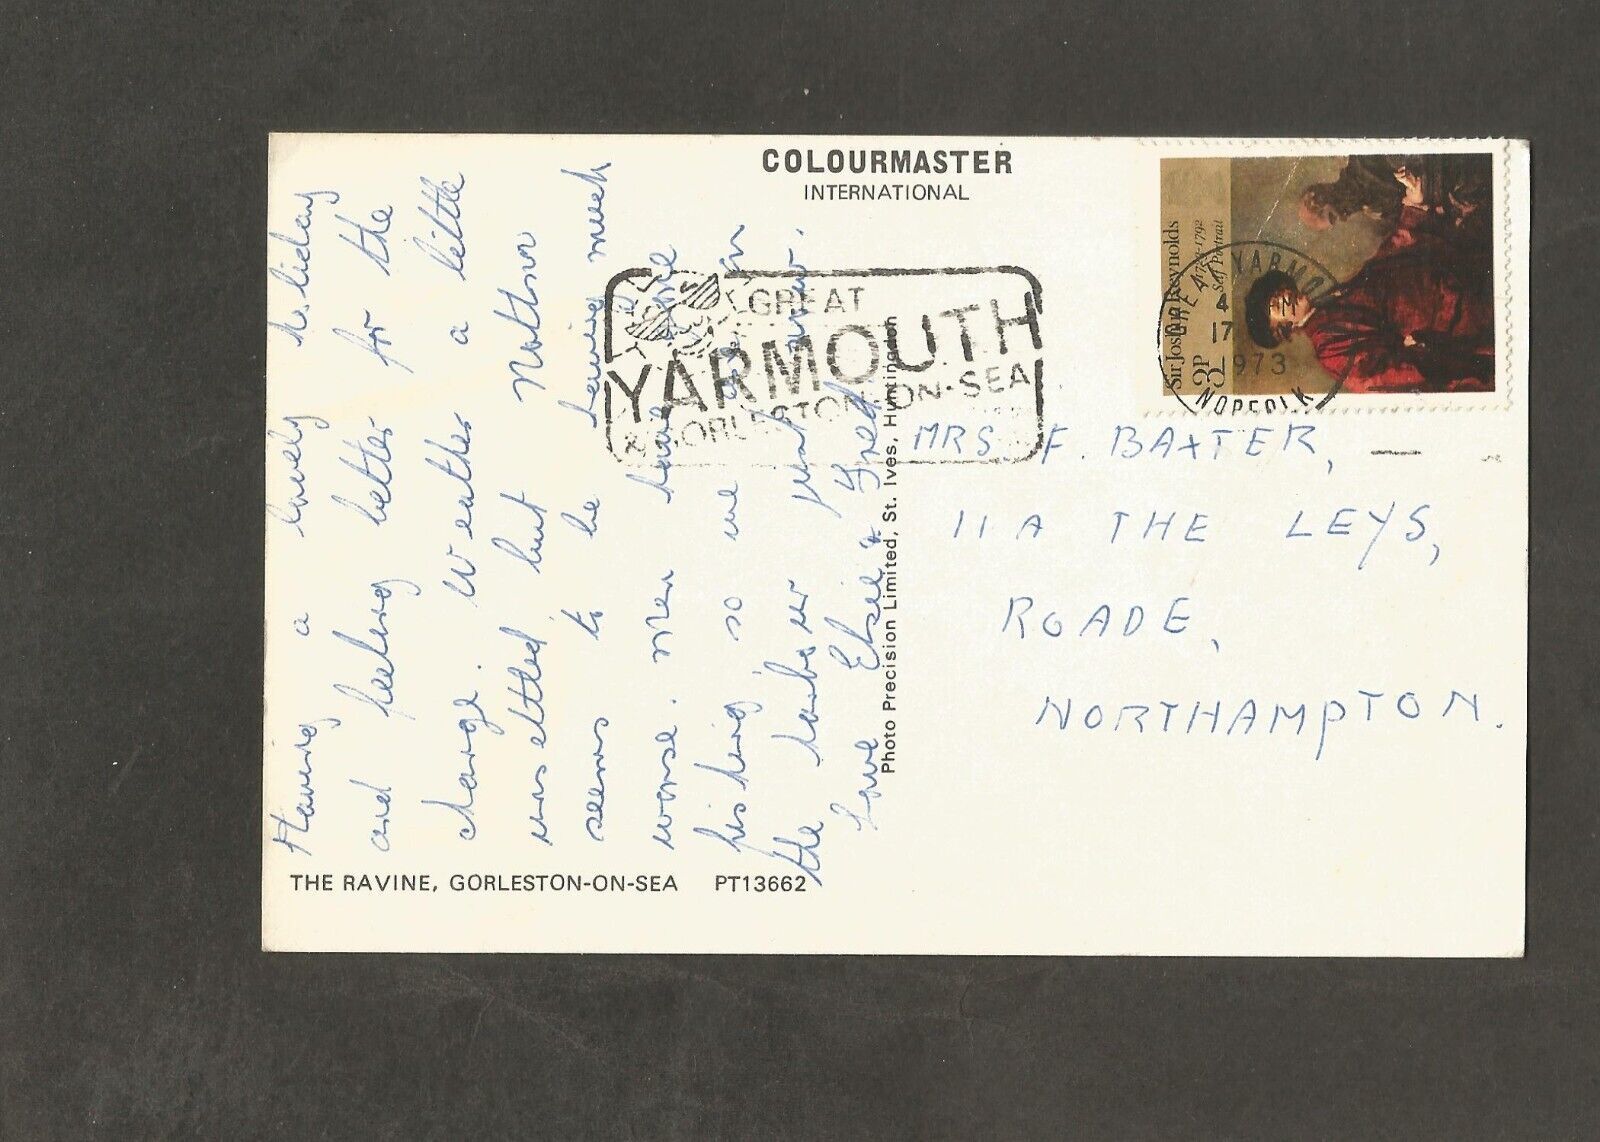 COLOURMASTER
INTERNATIONAL
Having a lovely holiday
and feeling better for the
change. Weather a little
unsettled but Northor
seems to be having much
worse. Men have gone
fishing, so we are on
the harbour just now.
Love Elsie & Fred
GREAT
YARMOUTH
& GORLESTON-ON-SEA
Photo Precision Limited, St. Ives, Huntingdon
Sir Joshua Reynolds
1723-1792
Self Portrait
3P
GREAT YARMOUTH
17
1973
NORFOLK
MRS. F. BAXTER,
11A THE LEYS,
ROADE,
NORTHAMPTON.
THE RAVINE, GORLESTON-ON-SEA PT13662